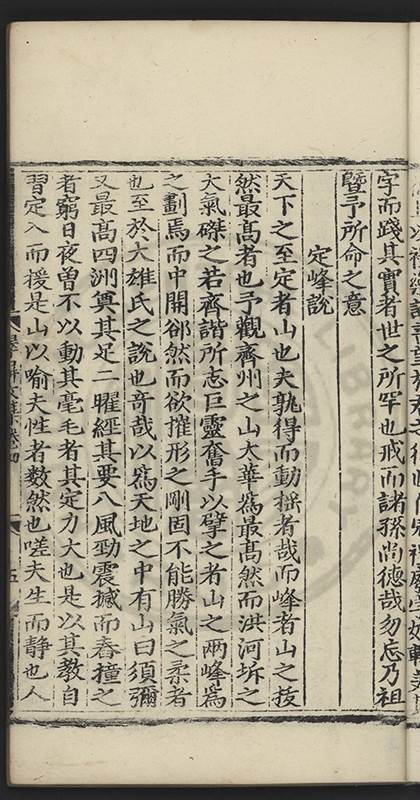 字而踐其實者世之所罕也戒而諸孫尚德哉勿忘乃祖
曁予所命之意
定峰說
天下之至定者山也夫孰得而動揺者哉而峰者山之拔
然最髙者也予觀齊州之山太華爲最髙然而洪河坼之
大氣磔之若齊諧所志巨靈奮手以擘之者山之兩峰爲
之劃焉而中開郤然而欲摧形之剛固不能勝氣之柔者
也至於大雄氏之說也竒哉以爲天地之中有山曰須彌
又最髙四洲奠其足二曜經其要八風勁震撼而舂撞之
者窮日夜曾不以動其毫毛者其定力大也是以其教自
習定入而援是山以喻夫性者数然也嗟夫生而静也人